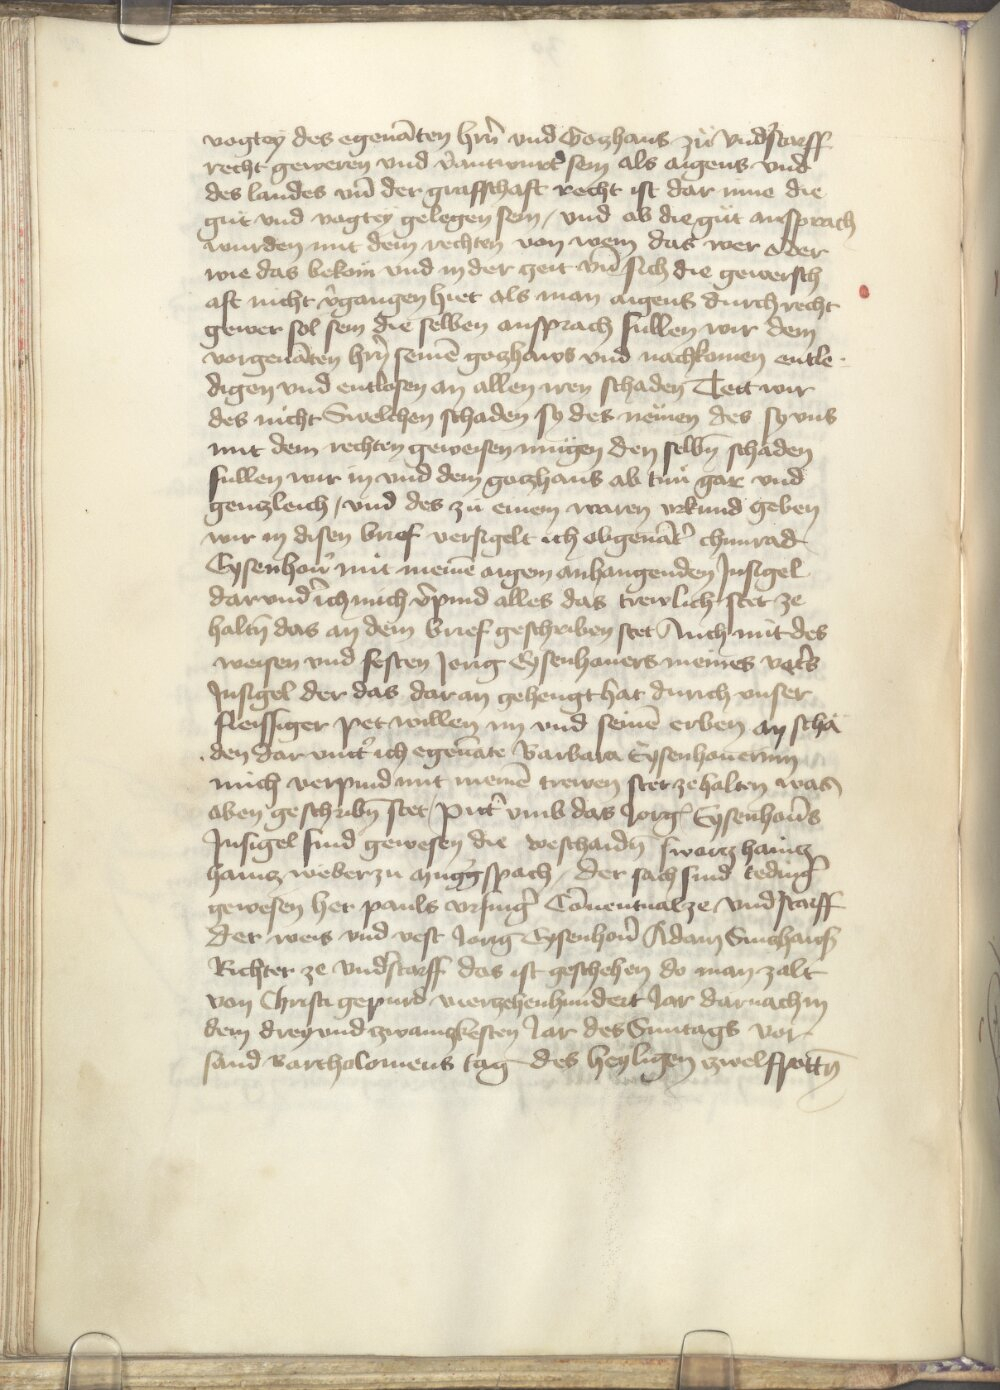 vogtey des egenāten hrn̄ vnd Gotzhaus zů vnd'starff
recht geweren vnd v'antwurt' sein als aigens vnd
des landes vn̄ der grafschaft recht ist dar inne die
gůt vnd vogtey gelegen sein / vnd ob die gůt ansprach
wurden mit dem rechten von wem das wer oder
wie das bekom vnd in der zeit vn̄ sich die gewersch
aft nicht v'gangen hiet als man aigens durch recht
gewer sol sein die selben ansprach sullen wir dem
vorgenāten hrn̄ seinē gotzhaws vnd nachkomen entle-
digen vnd entlosen an allen iren schaden Tett wir
des nicht Swelchen schaden sy des nëmen des sy vns
mit dem rechten geweisen mügen den selbn̄ schaden
sullen wir in vnd dem gotzhaus ab tun gar vnd
gentzleich / vnd des zu einem waren vrkund geben
wir in disen brief versigelt ich obgenāt' chunrad
Eysenhou' mit meinē aigem anhangenden Insigel
dar vnd' ich mich v'pind alles das trewlich stet ze
haltn̄ das an dem brief geschriben stet Auch mit des
weisen vnd festen Jorig Eysenhauers meines vet's
Insigel der das daran gehengt hat durich vnser
fleissiger pet willen im vnd seinē erben an scha
den dar vnt' ich egenāte Barbara Eysenhouerinn
mich verpind mit meinē trewen stet ze halten was
oben geschribn̄ stet / pitt' vmb das Jorg' Eysenhou's
Insigel sind gewesen die beschaidn̄ swartz haintz
haintz weber zu <!-- -->spach / der sach sind teding'
gewesen her pauls vrsing' Cōuentual ze vnd'starff
der weis vnd vest Jorig Eysenhou' Adam
Richter ze vnd'starff das ist geschehen do man zalt
von Christi gepurd vierzehenhundert Jar darnach in
dem drey vnd zwaintzkesten Jar des Suntags vor
sand Bartholomeus tag des heyligen zwelfpottn̄